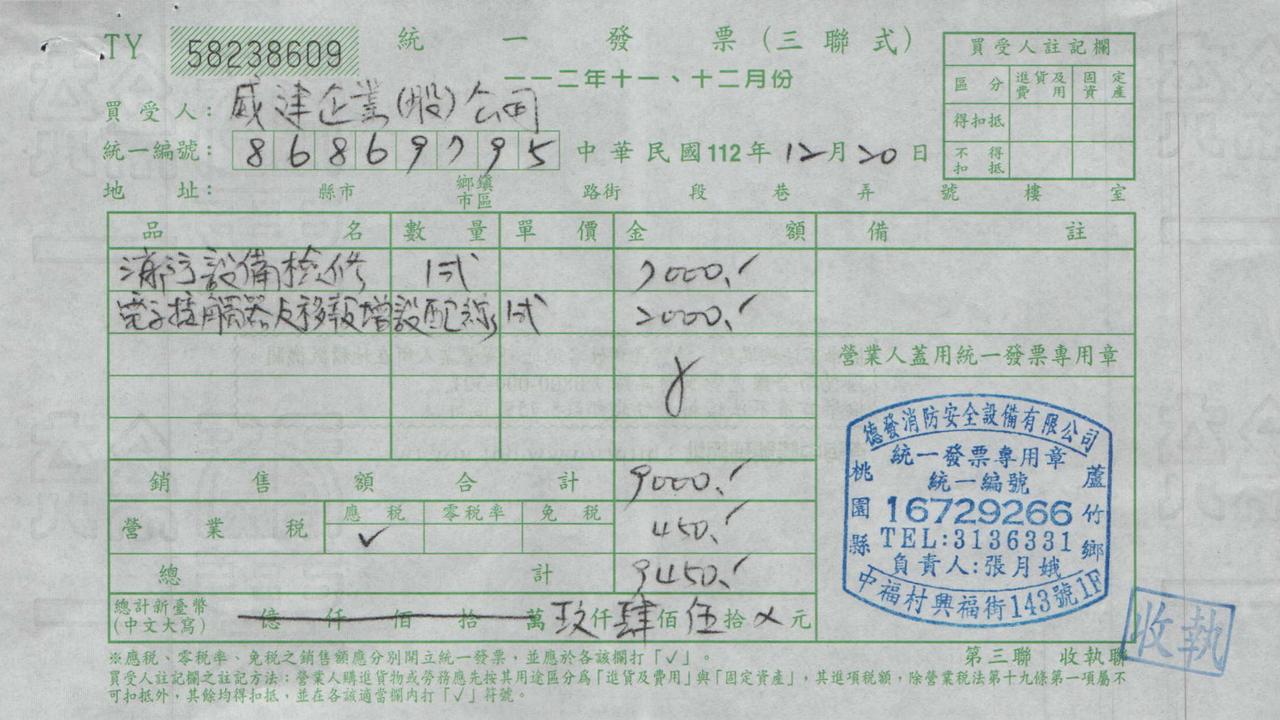 TY 58238609 統一發票(三聯式)
一一二年十一、十二月份
買受人註記欄
區分 進貨及費用 固定資產
得扣抵
不得扣抵
買受人: 威津企業(股)公司
統一編號: 86869795 中華民國112年12月20日
地址: 縣市 鄉鎮市區 路街 段 巷 弄 號 樓 室
品名 數量 單價 金額 備註
消防設備檢修 1式 7000.
電子接觸器及移報增設配線 1式 2000.
營業人蓋用統一發票專用章
銷售額合計 9000.
營業稅 應稅 ✓ 零稅率 免稅 450.
總計 9450.
總計新臺幣(中文大寫) 億 仟 佰 拾 萬 玖仟肆佰伍拾 元
德發消防安全設備有限公司
統一發票專用章
統一編號
16729266
TEL:3136331
負責人:張月娥
桃園縣
蘆竹鄉
中福村興福街143號1F
收執
※應稅、零稅率、免稅之銷售額應分別開立統一發票,並應於各該欄打「✓」。
第三聯 收執聯
買受人註記欄之註記方法:營業人購進貨物或勞務應先按其用途區分為「進貨及費用」與「固定資產」,其進項稅額,除營業稅法第十九條第一項屬不
可扣抵外,其餘均得扣抵,並在各該適當欄內打「✓」符號。